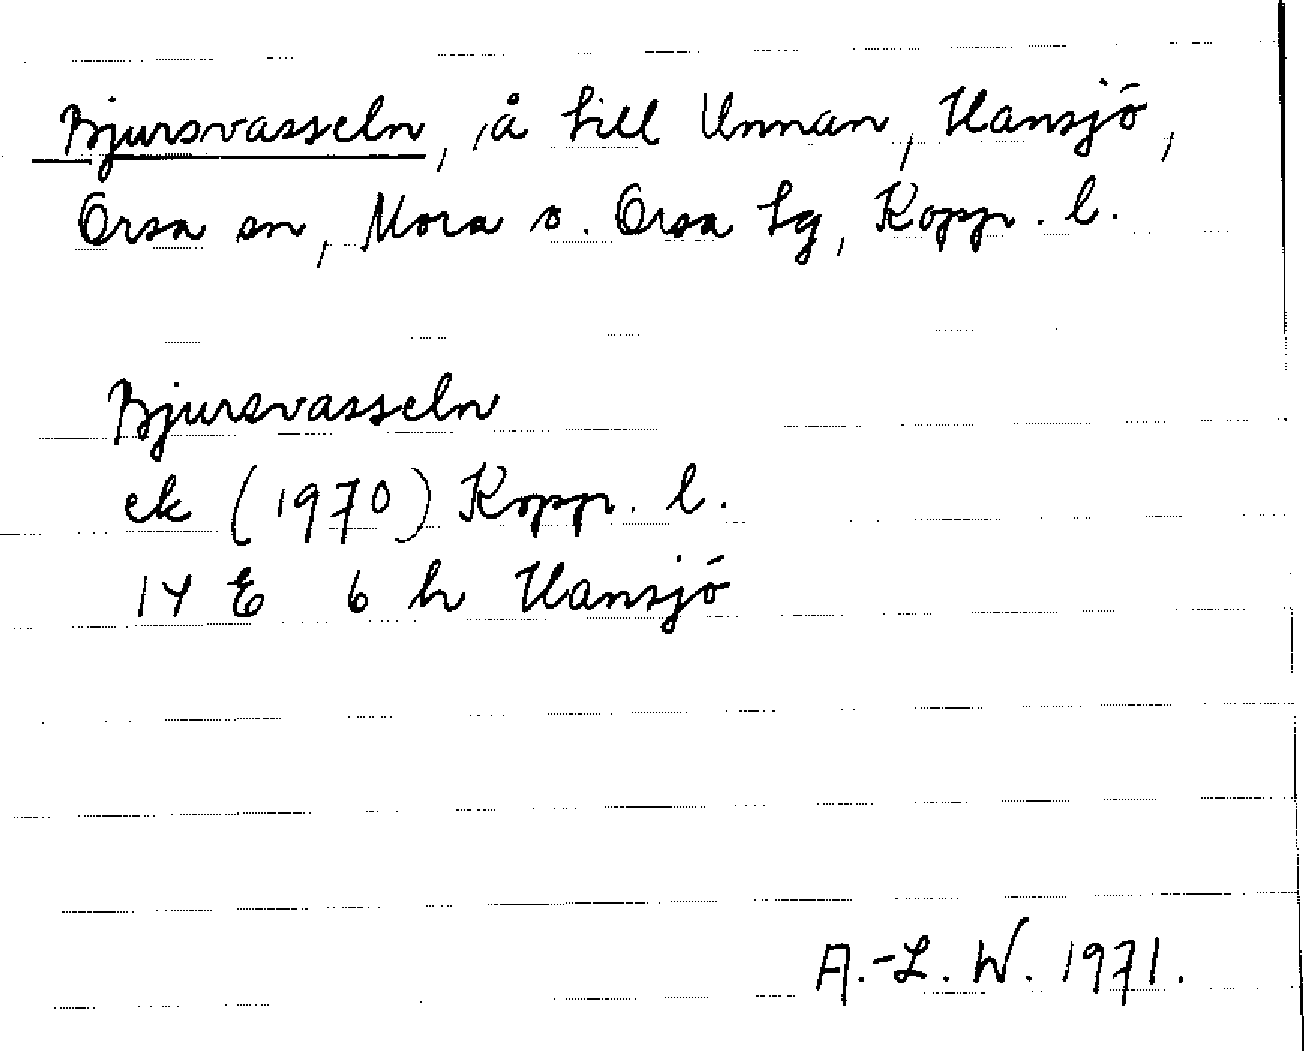 Bjursvasseln, å till Unnan, Hansjö,
Orsa sn, Mora o. Orsa tg, Kopp. l.
Bjursvasseln
ek (1970) Kopp. l.
14 E 6 h Hansjö
A.-L. W. 1971.